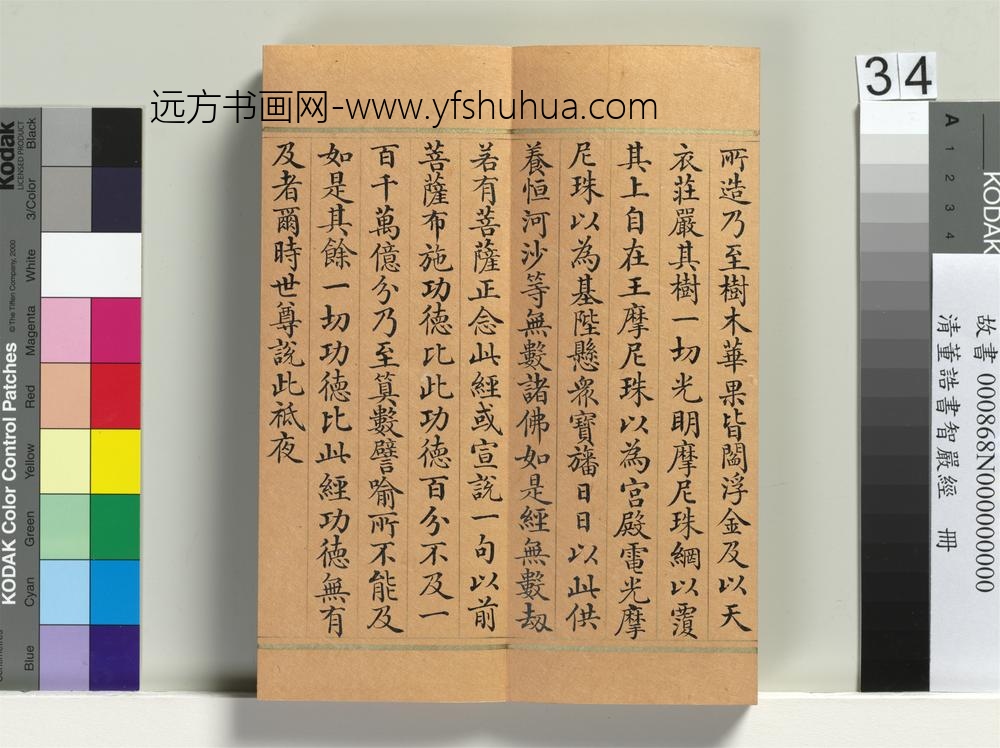 远方书画网-www.yfshuhua.com
所造乃至樹木華果皆閻浮金及以天
衣莊嚴其樹一切光明摩尼珠網以覆
其上自在王摩尼珠以為宮殿電光摩
尼珠以為基陛懸眾寶旛日日以此供
養恒河沙等無數諸佛如是經無數劫
若有菩薩正念此經或宣說一句以前
菩薩布施功德比此功德百分不及一
百千萬億分乃至筭數譬喻所不能及
如是其餘一切功德比此經功德無有
及者爾時世尊說此祇夜
34
故書 000868N000000000
清董誥書智嚴經 冊
KODAK
A 1 2 3 4
Kodak
LICENSED PRODUCT
KODAK Color Control Patches
© The Tiffen Company, 2000
Blue Cyan Green Yellow Red Magenta White 3/Color Black